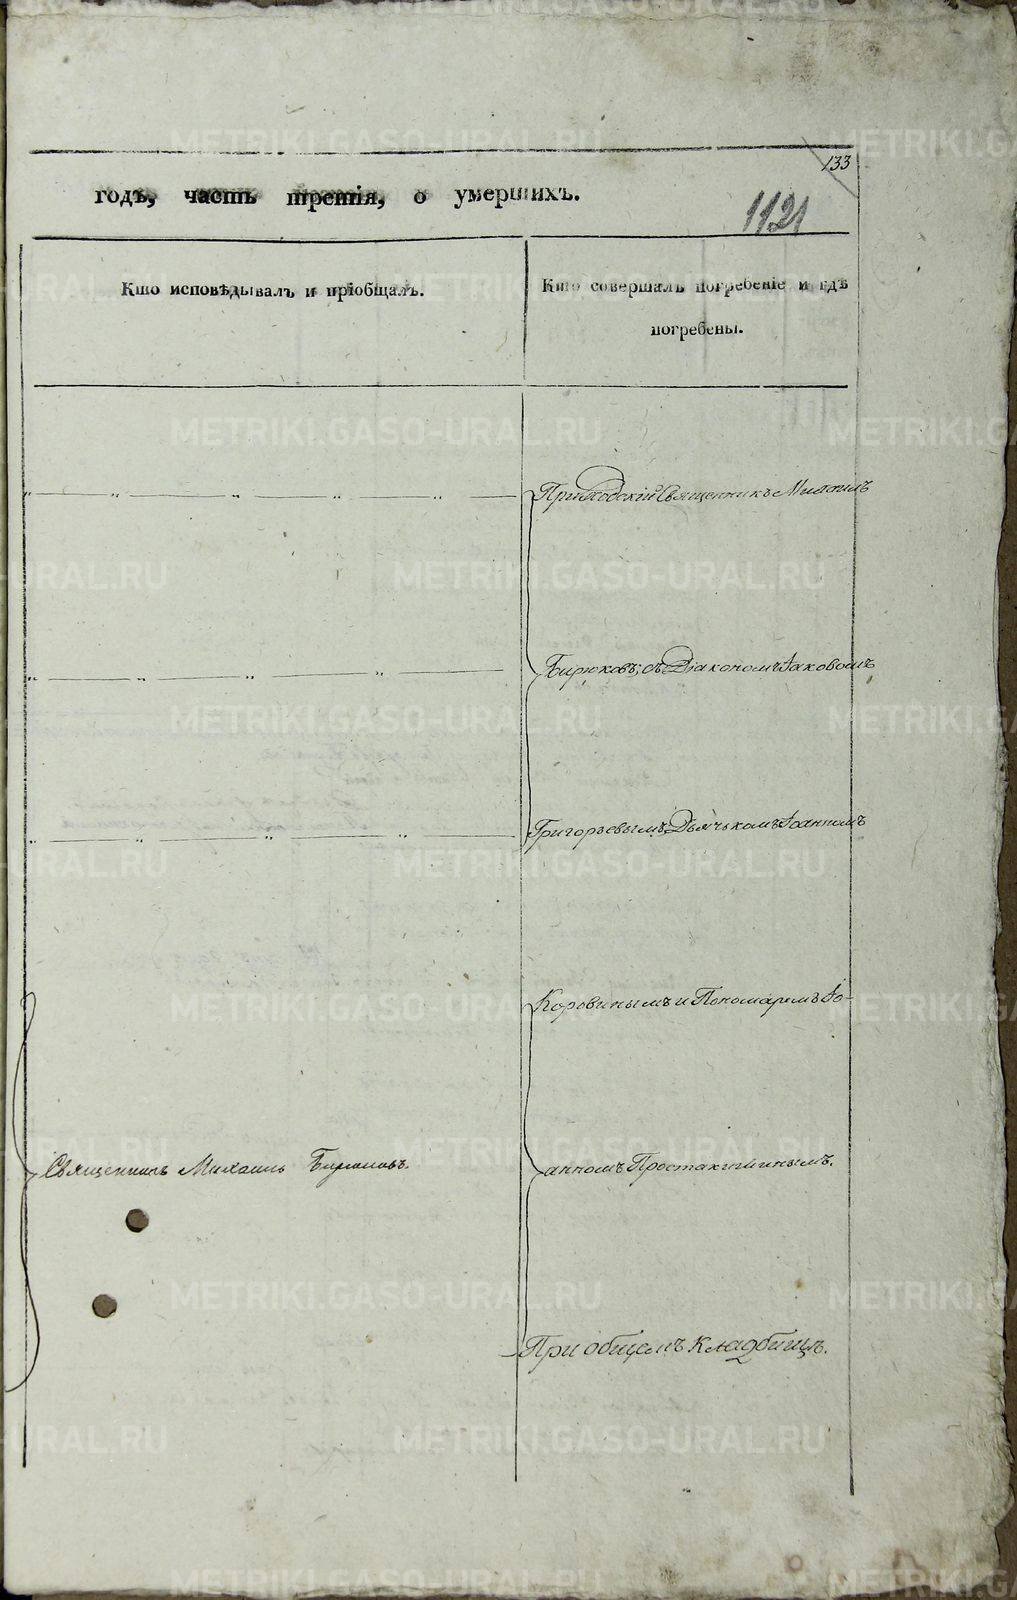 133
годъ, часть третія, о умершихъ.
1121
Кто исповѣдывалъ и пріобщалъ.
Кто совершалъ погребеніе и гдѣ
погребены.
Приходскій Священникъ Михаилъ
Бирюковъ, съ Діакономъ Іаковомъ
Григорьевымъ, Дьячькомъ Іоанномъ
Коровинымъ и Пономаремъ Іо-
Священникъ Михаилъ Бирюковъ.
анномъ
При общемъ кладбищѣ.
METRIKI.GASO-URAL.RU